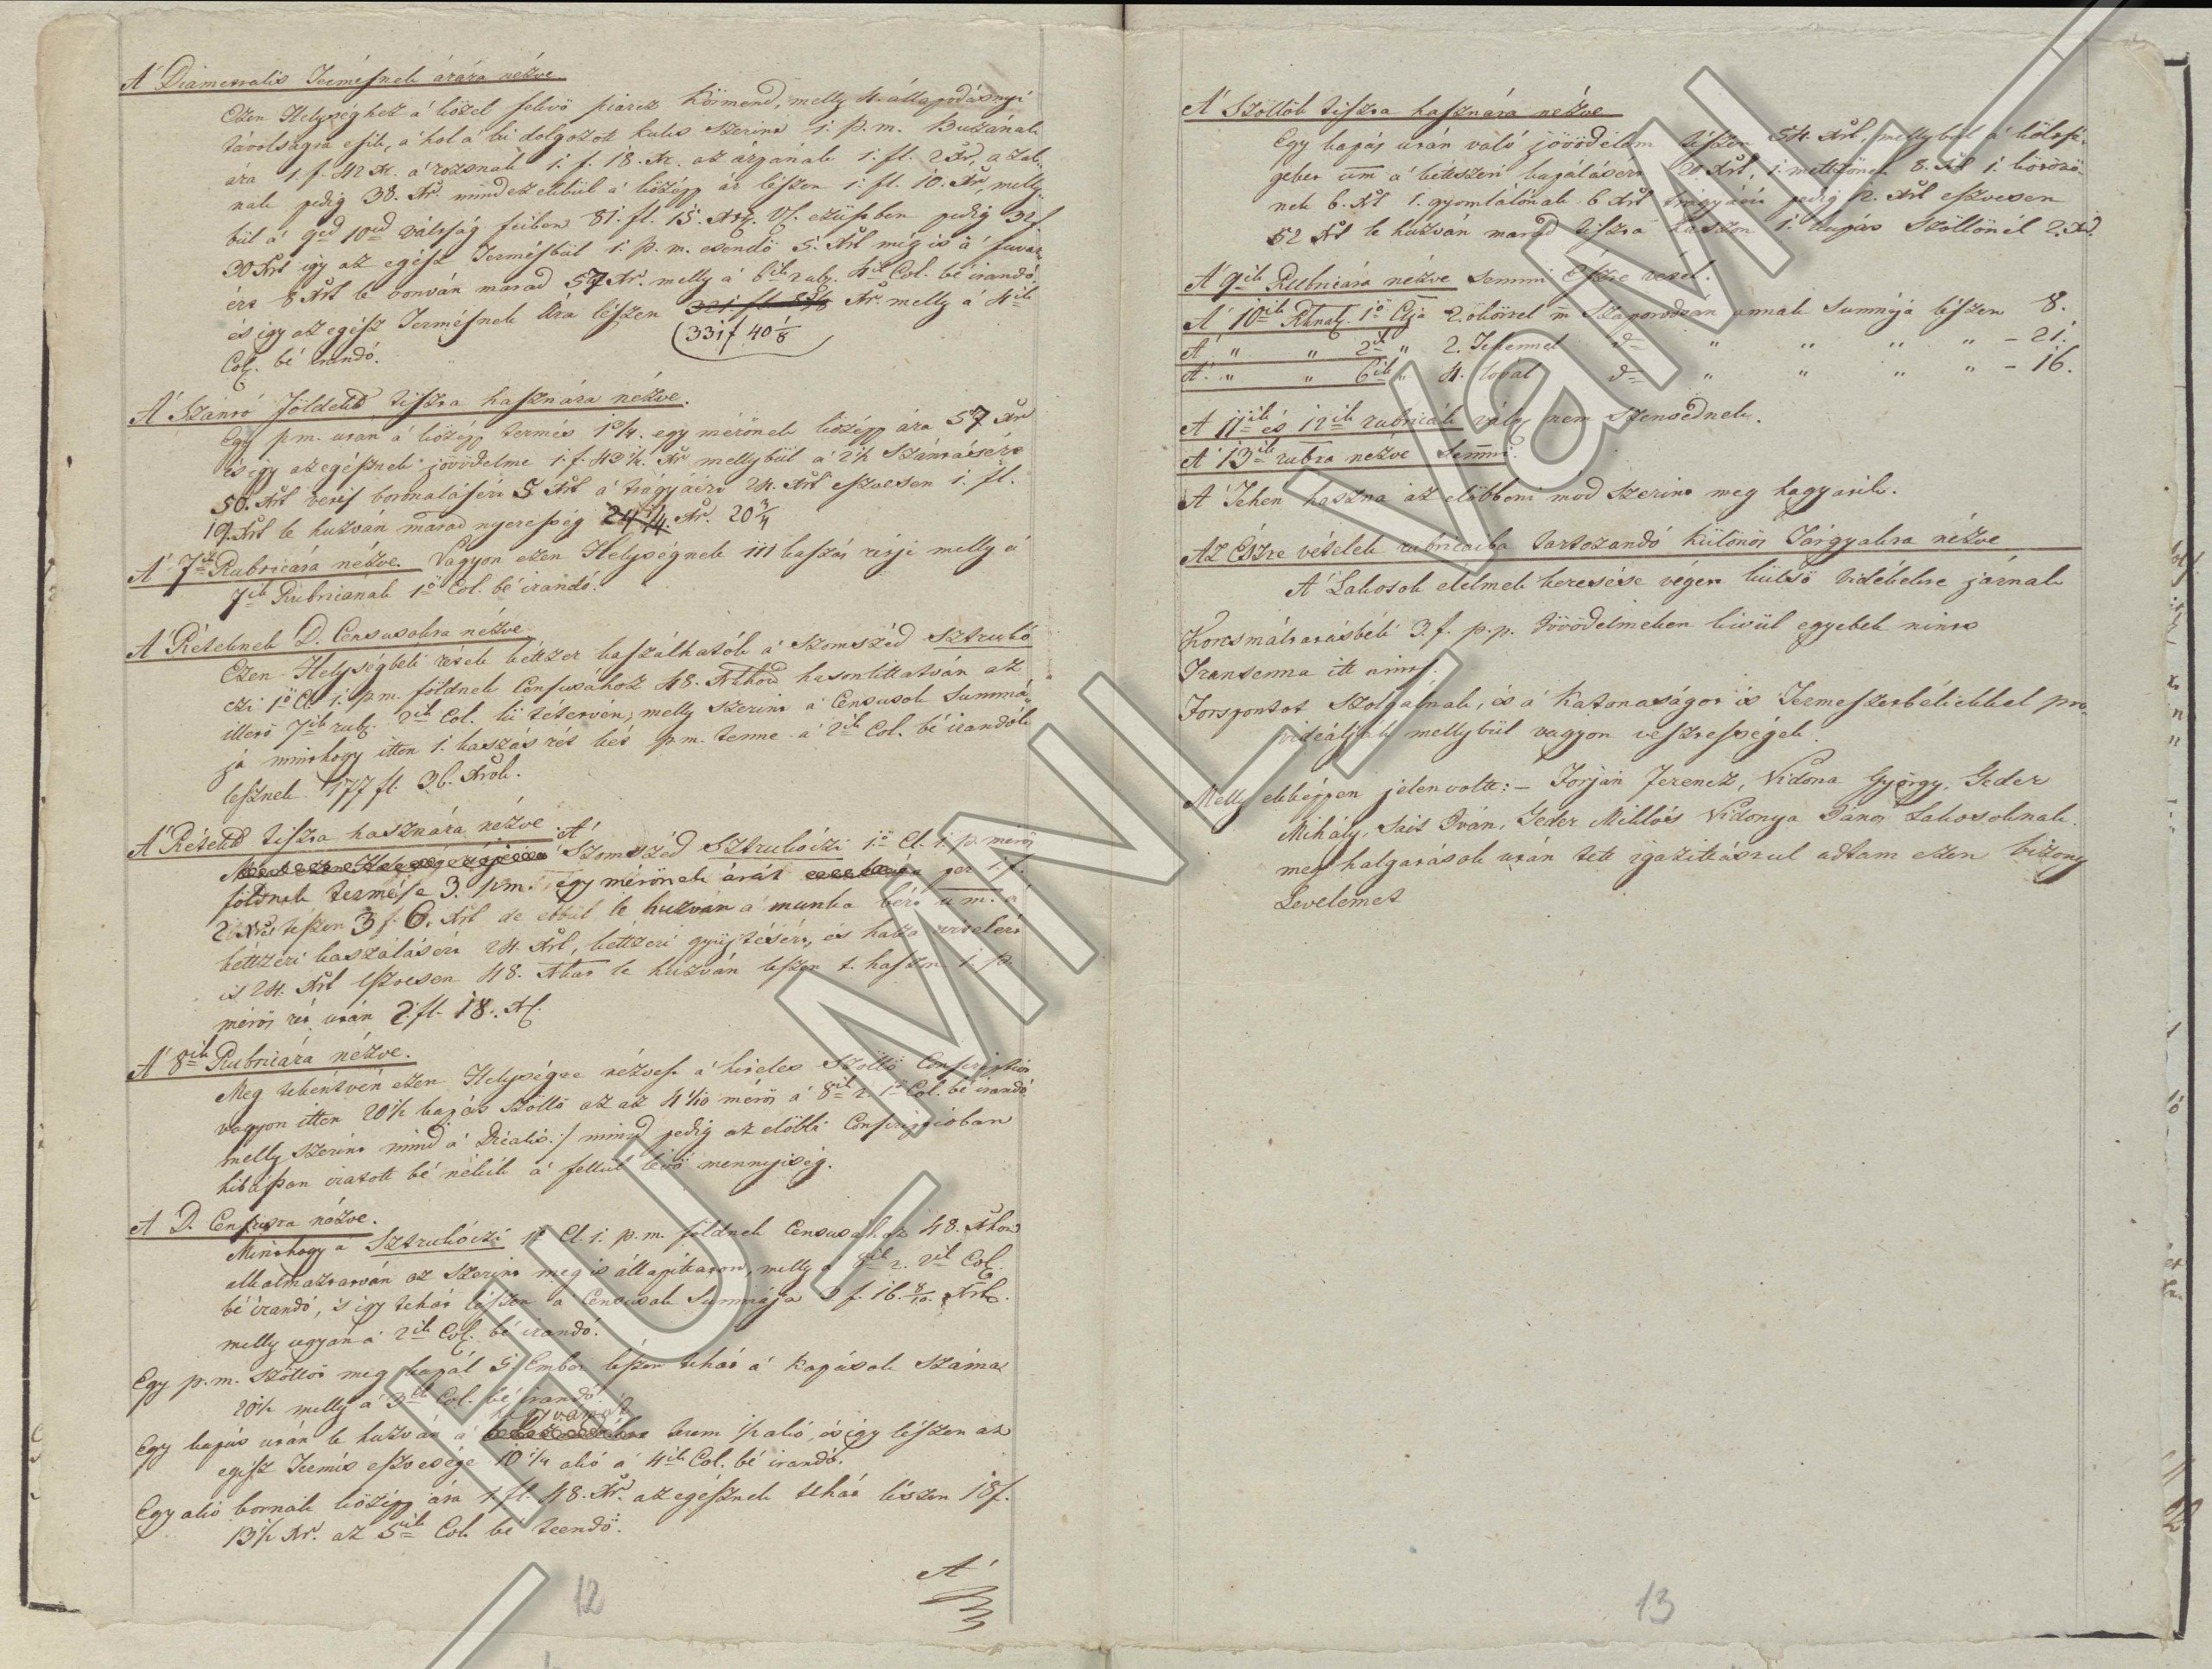 A' Diametralis Termésnek árára nézve
Ezen Helységhez a' közel fekvö piarcz Körmend, melly 4. állapodásnyi
távolságra esik, a' hol a' ki dolgozott kulcs szerint 1. p.m. Buzának
ára 1 f. 42 Xr. a' rozsnak 1. f. 18. Xr. az árpának 1. fl. 2 Xr, a zab
nak pedig 38. Xr. mind ezekbül a' középp ár lészen 1. fl. 10. Xr, melly
bül a' 9ed 10ed váltság fejében 81. fl. 15. Xrq. Vf. ezüstben pedig 32 f
30 Xrt így az egész Termésbül 1. p. m. esendö 5. Xrt még is a' fuvar
ért 8 Xrt le vonván marad 57 Xr. melly a' 6ik rub. 4ik Col. bé irandó
és így az egész Termésnek Ára lészen Xr. melly a' 4ik
(331 f 40 1/8
Col. bé irandó.
A' Szántó Földekk tiszta hasznára nézve.
Egy p.m. után a' középp termés 1 3/4. egy mérönek középp ára 57 Xr
és így az egésznek jövödelme 1. f. 49 1/2. Xr mellybül a' 2 1/2 Szántásért
50. Xrt vetés boronálásért 5 Xrt a' trágyáért 24. Xrt eszvesen 1. fl.
19. Xrt le huzván marad nyereség 24 1/4 Xr. 20 3/4
A' 7ik Rubricára nézve. Vagyon ezen Helységnek 111 kaszás rétje melly a'
7ik Rubricának 1ö Col. bé irandó.
A' Réteknek D. Censusokra nézve.
Ezen Helységbeli rétek kéttzer kaszálhatók a' Szomszéd Sztrukó
czi 1ö Cl. 1. p.m. földnek Censusához 48. Xrhoz hasonlíttatván az
illetö 7ik rub. 2ik Col. ki tétetvén, melly szerint a' Censusok Summá
ja minthogy itten 1. kaszás rét két p.m. tenne a' 2ik Col. bé irandók
lesznek 177 fl. 36. Xrok.
A' Rétekk tiszta hasznára nézve
A' Szomszéd Sztrukóczi 1ö Cl. 1. p. merös
földnek termése 3. p.m. egy mérönek árát per 1. f.
2 Xrt teszen 3 f. 6. Xrt de ebbül le huzván a' munka bért u.m. a
kéttzeri kaszálásért 24. Xrt, kéttzeri gyüjtésért, és haza vitelért
is 24. Xrt eszvesen 48. Xkat le huzván leszen t. haszn 1. p.
mérös rét után 2. fl. 18. Xr.
A' 8ik Rubricára nézve.
Meg tekéntvén ezen Helységre nézvest a' hiteles Szöllö Conscriptiot
vagyon itten 20 1/2 kapás szöllö az az 4 1/10 mérös a' 8ik r. 1ö Col. bé irandó
melly szerint mind a' Dicalis :/ mind pedig az elöbbi Conscriptioban
hibássan iratott bé nékik a' fellül lévö mennyiség.
A D. Censusra nézve.
Minthogy a' Sztrukóczi 1ö Cl. 1. p. m. földnek Censusához 48. Xrhoz
alkalmaztatván az szerint meg is állapíttatott, melly a' 8ik r. 2ik Col.
bé irandó, 's így tehát lészen a' Censusok Summája 3 f. 16. 8/10. Xrk.
melly ugyan a' 2ik Col. bé irandó.
Egy p. m. szöllöt meg kapál 5. Ember lészen tehát a' Kapások száma
20 1/2 melly a' 3ik Col. bé irandó.
hegyvámot
Egy kapás után le huzván a' terem 1/2 akó, és így lészen az
egész Termés eszvesége 10 1/4 akó a' 4ik Col. bé irandó.
Egy akó bornak középp ára 1. fl. 48. Xr. az egésznek tehát lészen 18 f.
13 1/2 Xr. az 5ik Col. bé teendö.
A'
12
A' Szöllök tiszta hasznára nézve
Egy kapás után való jövödelem tészen 54. Xrt. mellybül a' költsé
geket úm a' kéttszeri kapálásért 20 Xrt, 1. metzönek 8. Xrt 1. kötözö
nek 6. Xrt 1. gyomlálónak 6 Xrt trágyáért pedig 12. Xrt eszvesen
52 Xrt le huzván marad tiszta haszon 1. kapás Szöllönél 2. Xr.
A' 9ik Rubricára nézve semmi Észre vétel.
A' 10ik Rbnak. 1ö Clja 2. ökörrel m Szaporodván annak Summája lészen 8.
A' " " 2ik " 2. Tehennel d= " " " " – 21.
A' " " 6ik " 4. lóval d= " " " " – 16.
A' 11ik és 12ik rubricák váltz nem szenvednek.
A' 13ik rubra nézve Semmi.
A' Tehen haszna az elöbbeni mód szerint meg hagyatik.
Az Észre vételek rubricaiba tartozandó különös Tárgyakra nézve
A' Lakosok élelmek keresése végett külsö vidékekre járnak
Korcsmáltatásbéli 3. f. p.p. Jövödelmeken kívül egyebek nincs
Transenna itt nincs.
Forspontot szolgálnak, és a' Katonaságot is Termeszetbéliekkel pro
videálják mellybül vagyon vesztességek.
Melly ekképpen jelen voltt :– Forján Ferencz, Vidona György, Geder
Mihály, Sáit Iván, Geder Miklós Vidonya János Lakosoknak
meg halgatások után tett igazittásrul adtam ezen bizony
Levelemet
13
HU MNL VaML